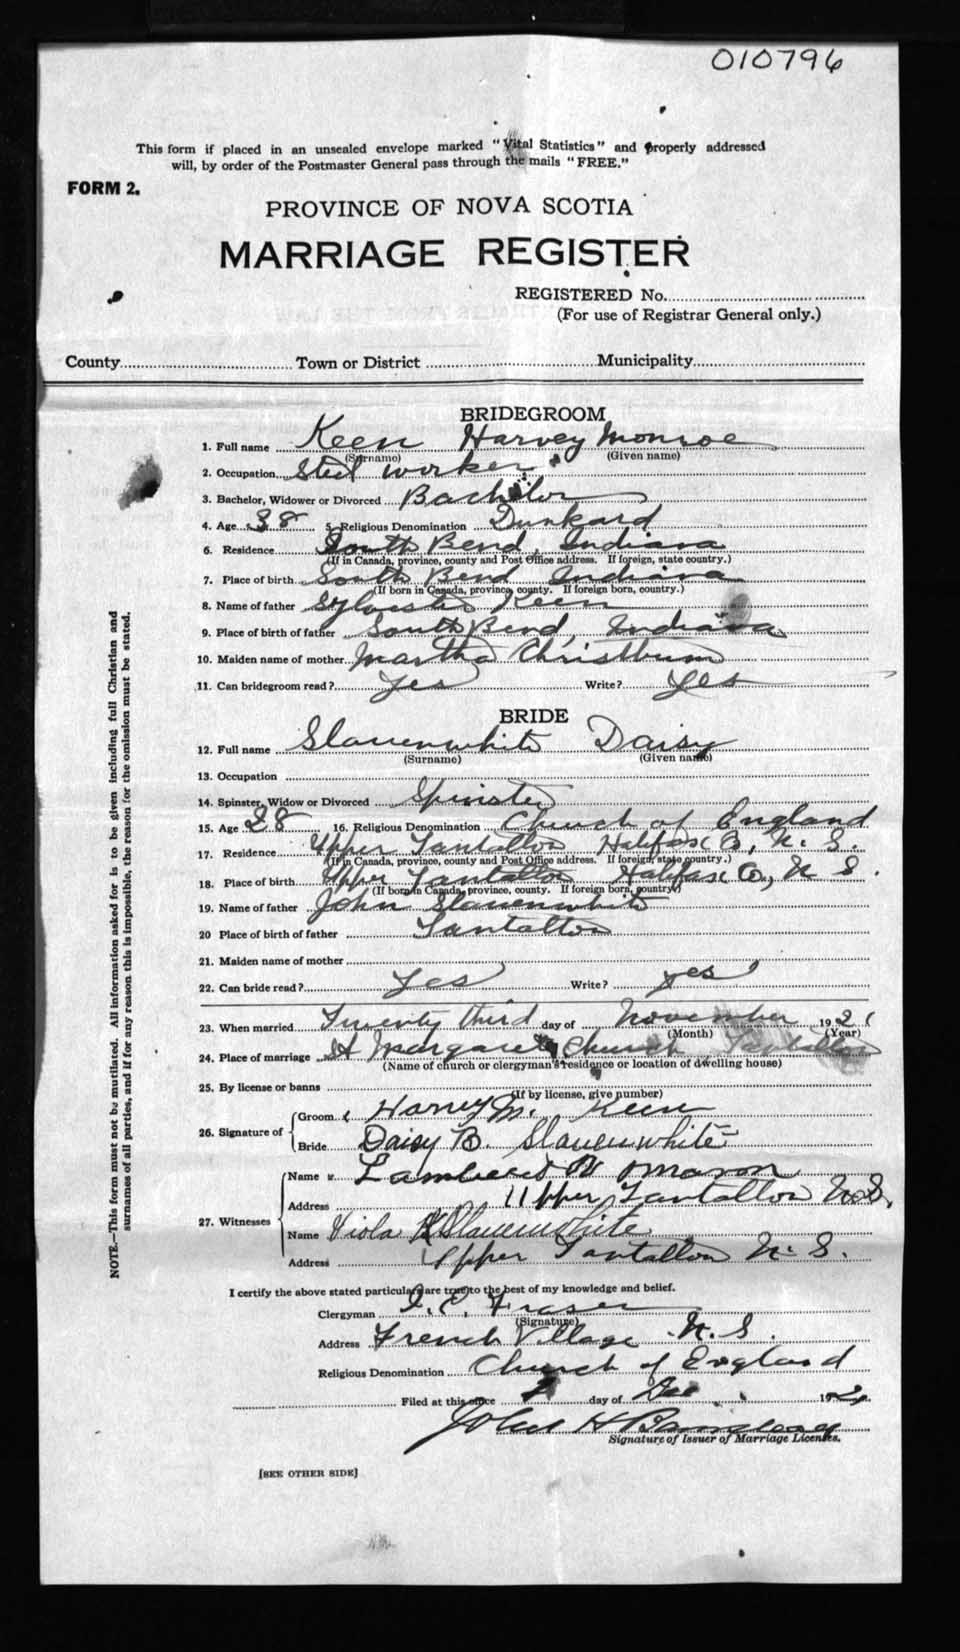 010796
This form if placed in an unsealed envelope marked "Vital Statistics" and properly addressed
will, by order of the Postmaster General pass through the mails "FREE."
FORM 2.
PROVINCE OF NOVA SCOTIA
MARRIAGE REGISTER
REGISTERED No.
(For use of Registrar General only.)
County Town or District Municipality
BRIDEGROOM
1. Full name Keen Harvey Monroe
(Surname) (Given name)
2. Occupation Steel worker
3. Bachelor, Widower or Divorced Bachelor
4. Age 38 5. Religious Denomination Dunkard
6. Residence South Bend, Indiana
(If in Canada, province, county and Post Office address. If foreign, state country.)
7. Place of birth South Bend Indiana
(If born in Canada, province, county. If foreign born, country.)
8. Name of father Sylvester Keen
9. Place of birth of father South Bend, Indiana
10. Maiden name of mother Martha
11. Can bridegroom read? Yes Write? Yes
BRIDE
12. Full name Slauenwhite Daisy
(Surname) (Given name)
13. Occupation
14. Spinster, Widow or Divorced Spinster
15. Age 28 16. Religious Denomination Church of England
17. Residence Upper Tantallon Halifax Co, N. S.
(If in Canada, province, county and Post Office address. If foreign, state country.)
18. Place of birth Upper Tantallon Halifax Co, N S.
(If born in Canada, province, county. If foreign born, country)
19. Name of father John Slauenwhite
20 Place of birth of father Tantallon
21. Maiden name of mother
22. Can bride read? Yes Write? yes
23. When married Twenty third day of November 1921
(Month) (Year)
24. Place of marriage St Margaret Church Tantallon
(Name of church or clergyman's residence or location of dwelling house)
25. By license or banns
(If by license, give number)
26. Signature of Groom Harvey M. Keen
Bride Daisy B. Slauenwhite
27. Witnesses Name Mason
Address Upper Tantallon N.S.
Name Viola Slauenwhite
Address Upper Tantallon N. S.
I certify the above stated particulars are true to the best of my knowledge and belief.
Clergyman Fraser
(Signature)
Address French Village N. S.
Religious Denomination Church of England
Filed at this office day of Dec 192
John H
Signature of Issuer of Marriage Licenses.
[SEE OTHER SIDE]
NOTE.—This form must not be mutilated. All information asked for is to be given including full Christian and
surnames of all parties, and if for any reason this is impossible, the reason for the omission must be stated.